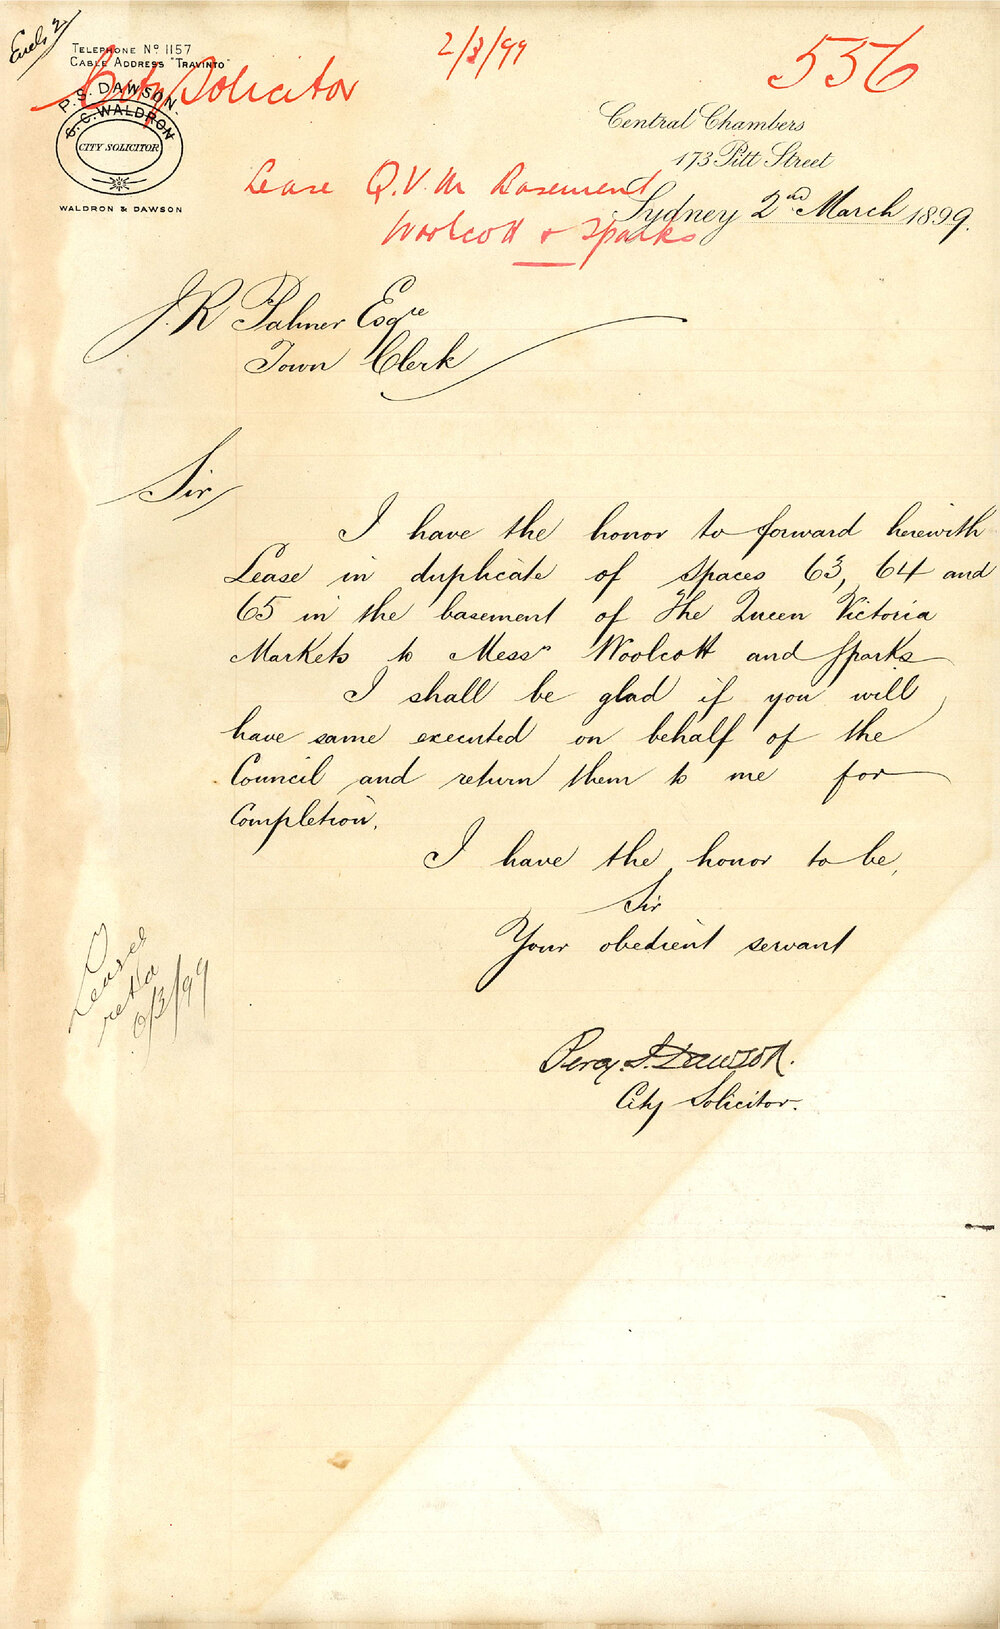 Encls 2
TELEPHONE No 1157
CABLE ADDRESS "TRAVINTO"
2/3/99
556
City Solicitor
P. S. DAWSON.
G. C. WALDRON
CITY SOLICITOR
WALDRON & DAWSON
Central Chambers
173 Pitt Street
Lease Q.V.M Basement
Sydney 2nd March 1899.
Woolcott & Sparks
J. R Palmer Esqre
Town Clerk
Sir
I have the honor to forward herewith
Lease in duplicate of spaces 63, 64 and
65 in the basement of The Queen Victoria
Markets to Messrs Woolcott and Sparks
I shall be glad if you will
have same executed on behalf of the
Council and return them to me for
completion.
I have the honor to be,
Sir
Your obedient servant
Percy. S. Dawson.
City Solicitor.
Leases
/3/99